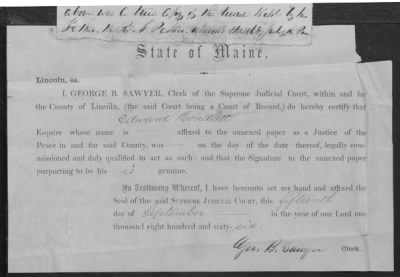 above is a true Copy of the
State of Maine.
Lincoln, ss.
I, GEORGE B. SAWYER, Clerk of the Supreme Judicial Court, within and for
the County of Lincoln, (the said Court being a Court of Record,) do hereby certify that
Edward
Esquire whose name is affixed to the annexed paper as a Justice of the
Peace in and for said County, was on the day of the date thereof, legally com-
missioned and duly qualified to act as such; and that the Signature to the annexed paper
purporting to be his is genuine.
In Testimony Whereof, I have hereunto set my hand and affixed the
Seal of the said SUPREME JUDICIAL COURT, this fifteenth
day of September in the year of our Lord one
thousand eight hundred and sixty six.
Geo. B. Sawyer Clerk.